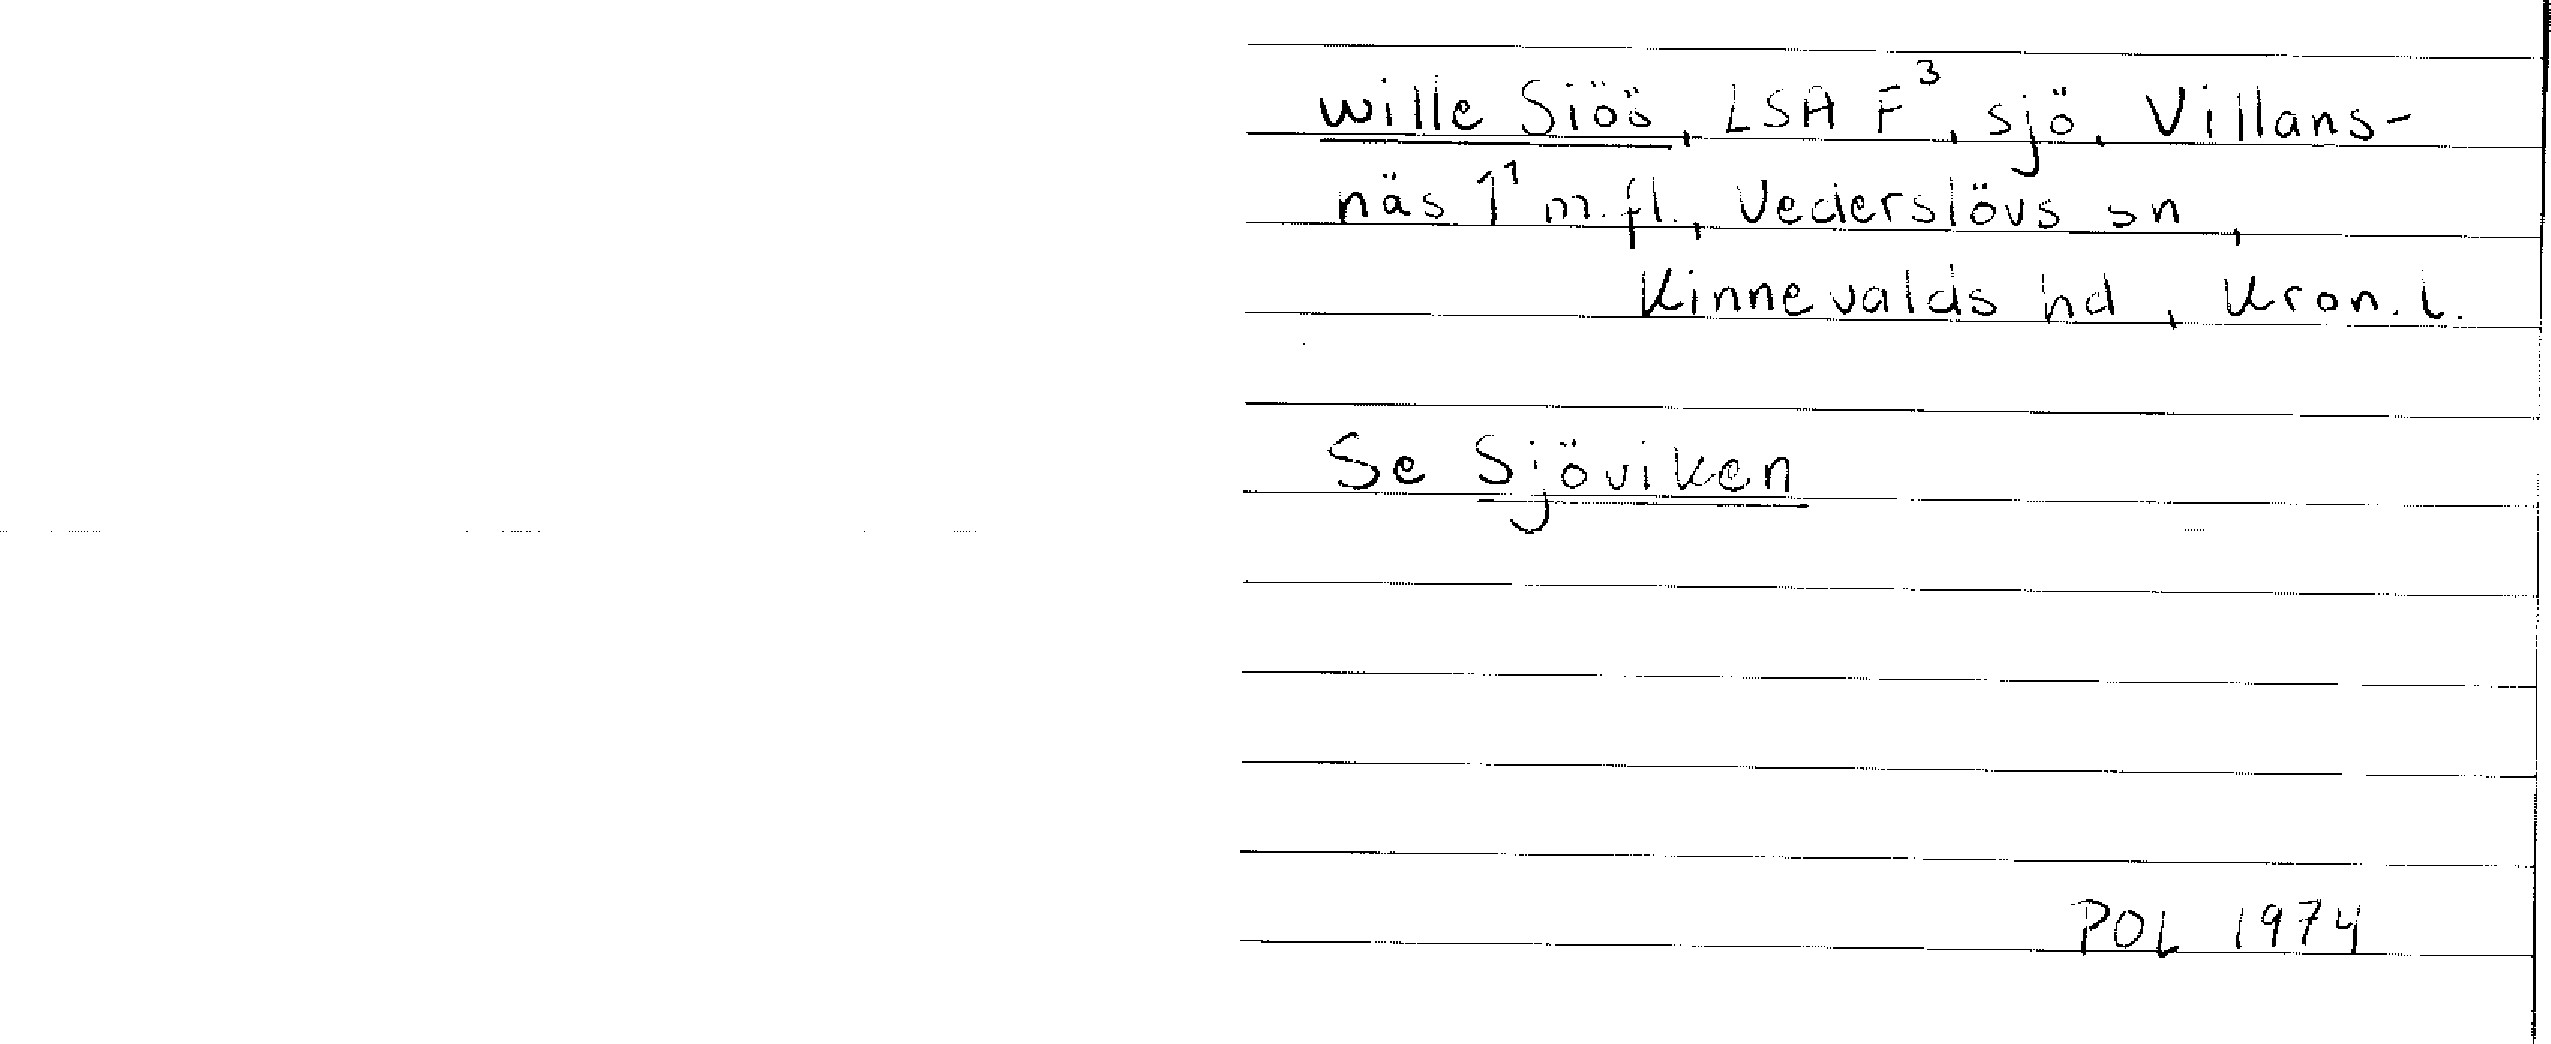 wille Siöö, LSA F³, sjö, Villans-
näs 1¹ m.fl., Vederslövs sn,
Kinnevalds hd, Kron. l.
Se Sjöviken
POL 1974